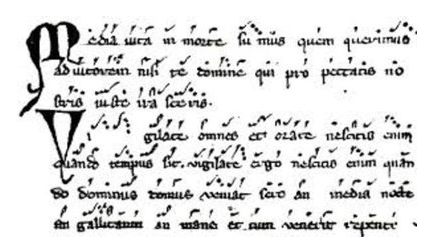 Media uita in morte sumus quem querimus
adiutorem nisi te domine qui pro peccatis no
stris iuste irasceris.
Vigilate omnes et orate nescitis enim
quando tempus sit. uigilate ergo nescitis enim quan
do dominus domus ueniat sero an media nocte
an gallicantu an mane et cum uenerit repente